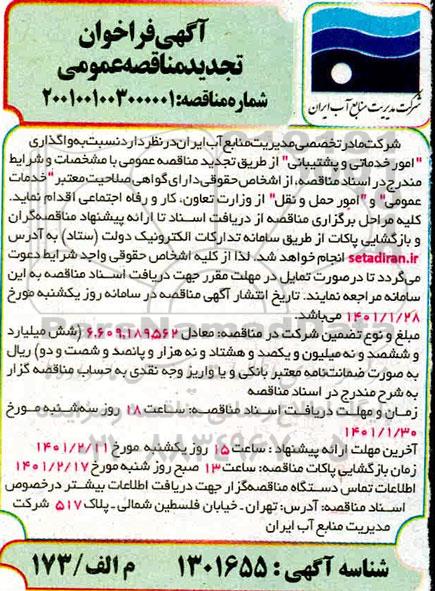 آگهی فراخوان
تجدید مناقصه عمومی
شماره مناقصه: ۲۰۰۱۰۰۱۰۰۳۰۰۰۰۰۱
شرکت مدیریت منابع آب ایران
شرکت مادر تخصصی مدیریت منابع آب ایران در نظر دارد نسبت به واگذاری
"امور خدماتی و پشتیبانی" از طریق تجدید مناقصه عمومی با مشخصات و شرایط
مندرج در اسناد مناقصه، از اشخاص حقوقی دارای گواهی صلاحیت معتبر "خدمات
عمومی" و "امور حمل و نقل" از وزارت تعاون، کار و رفاه اجتماعی اقدام نماید.
کلیه مراحل برگزاری مناقصه از دریافت اسناد تا ارائه پیشنهاد مناقصه‌گران
و بازگشایی پاکات از طریق سامانه تدارکات الکترونیک دولت (ستاد) به آدرس
setadiran.ir انجام خواهد شد. لذا از کلیه اشخاص حقوقی واجد شرایط دعوت
می‌گردد تا در صورت تمایل در مهلت مقرر جهت دریافت اسناد مناقصه به این
سامانه مراجعه نمایند. تاریخ انتشار آگهی مناقصه در سامانه روز یکشنبه مورخ
۱۴۰۱/۱/۲۸ می‌باشد.
مبلغ و نوع تضمین شرکت در مناقصه: معادل ۶،۶۰۹،۱۸۹۵۶۲ (شش میلیارد
و ششصد و نه میلیون و یکصد و هشتاد و نه هزار و پانصد و شصت و دو) ریال
به صورت ضمانت‌نامه معتبر بانکی و یا واریز وجه نقدی به حساب مناقصه گزار
به شرح مندرج در اسناد مناقصه
زمان و مهلت دریافت اسناد مناقصه: ساعت ۱۸ روز سه‌شنبه مورخ
۱۴۰۱/۱/۳۰
آخرین مهلت ارائه پیشنهاد: ساعت ۱۵ روز یکشنبه مورخ ۱۴۰۱/۲/۱۱
زمان بازگشایی پاکات مناقصه: ساعت ۱۳ صبح روز شنبه مورخ ۱۴۰۱/۲/۱۷
اطلاعات تماس دستگاه مناقصه‌گزار جهت دریافت اطلاعات بیشتر در خصوص
اسناد مناقصه: آدرس: تهران - خیابان فلسطین شمالی - پلاک ۵۱۷ شرکت
مدیریت منابع آب ایران
شناسه آگهی: ۱۳۰۱۶۵۵
م الف/۱۷۳